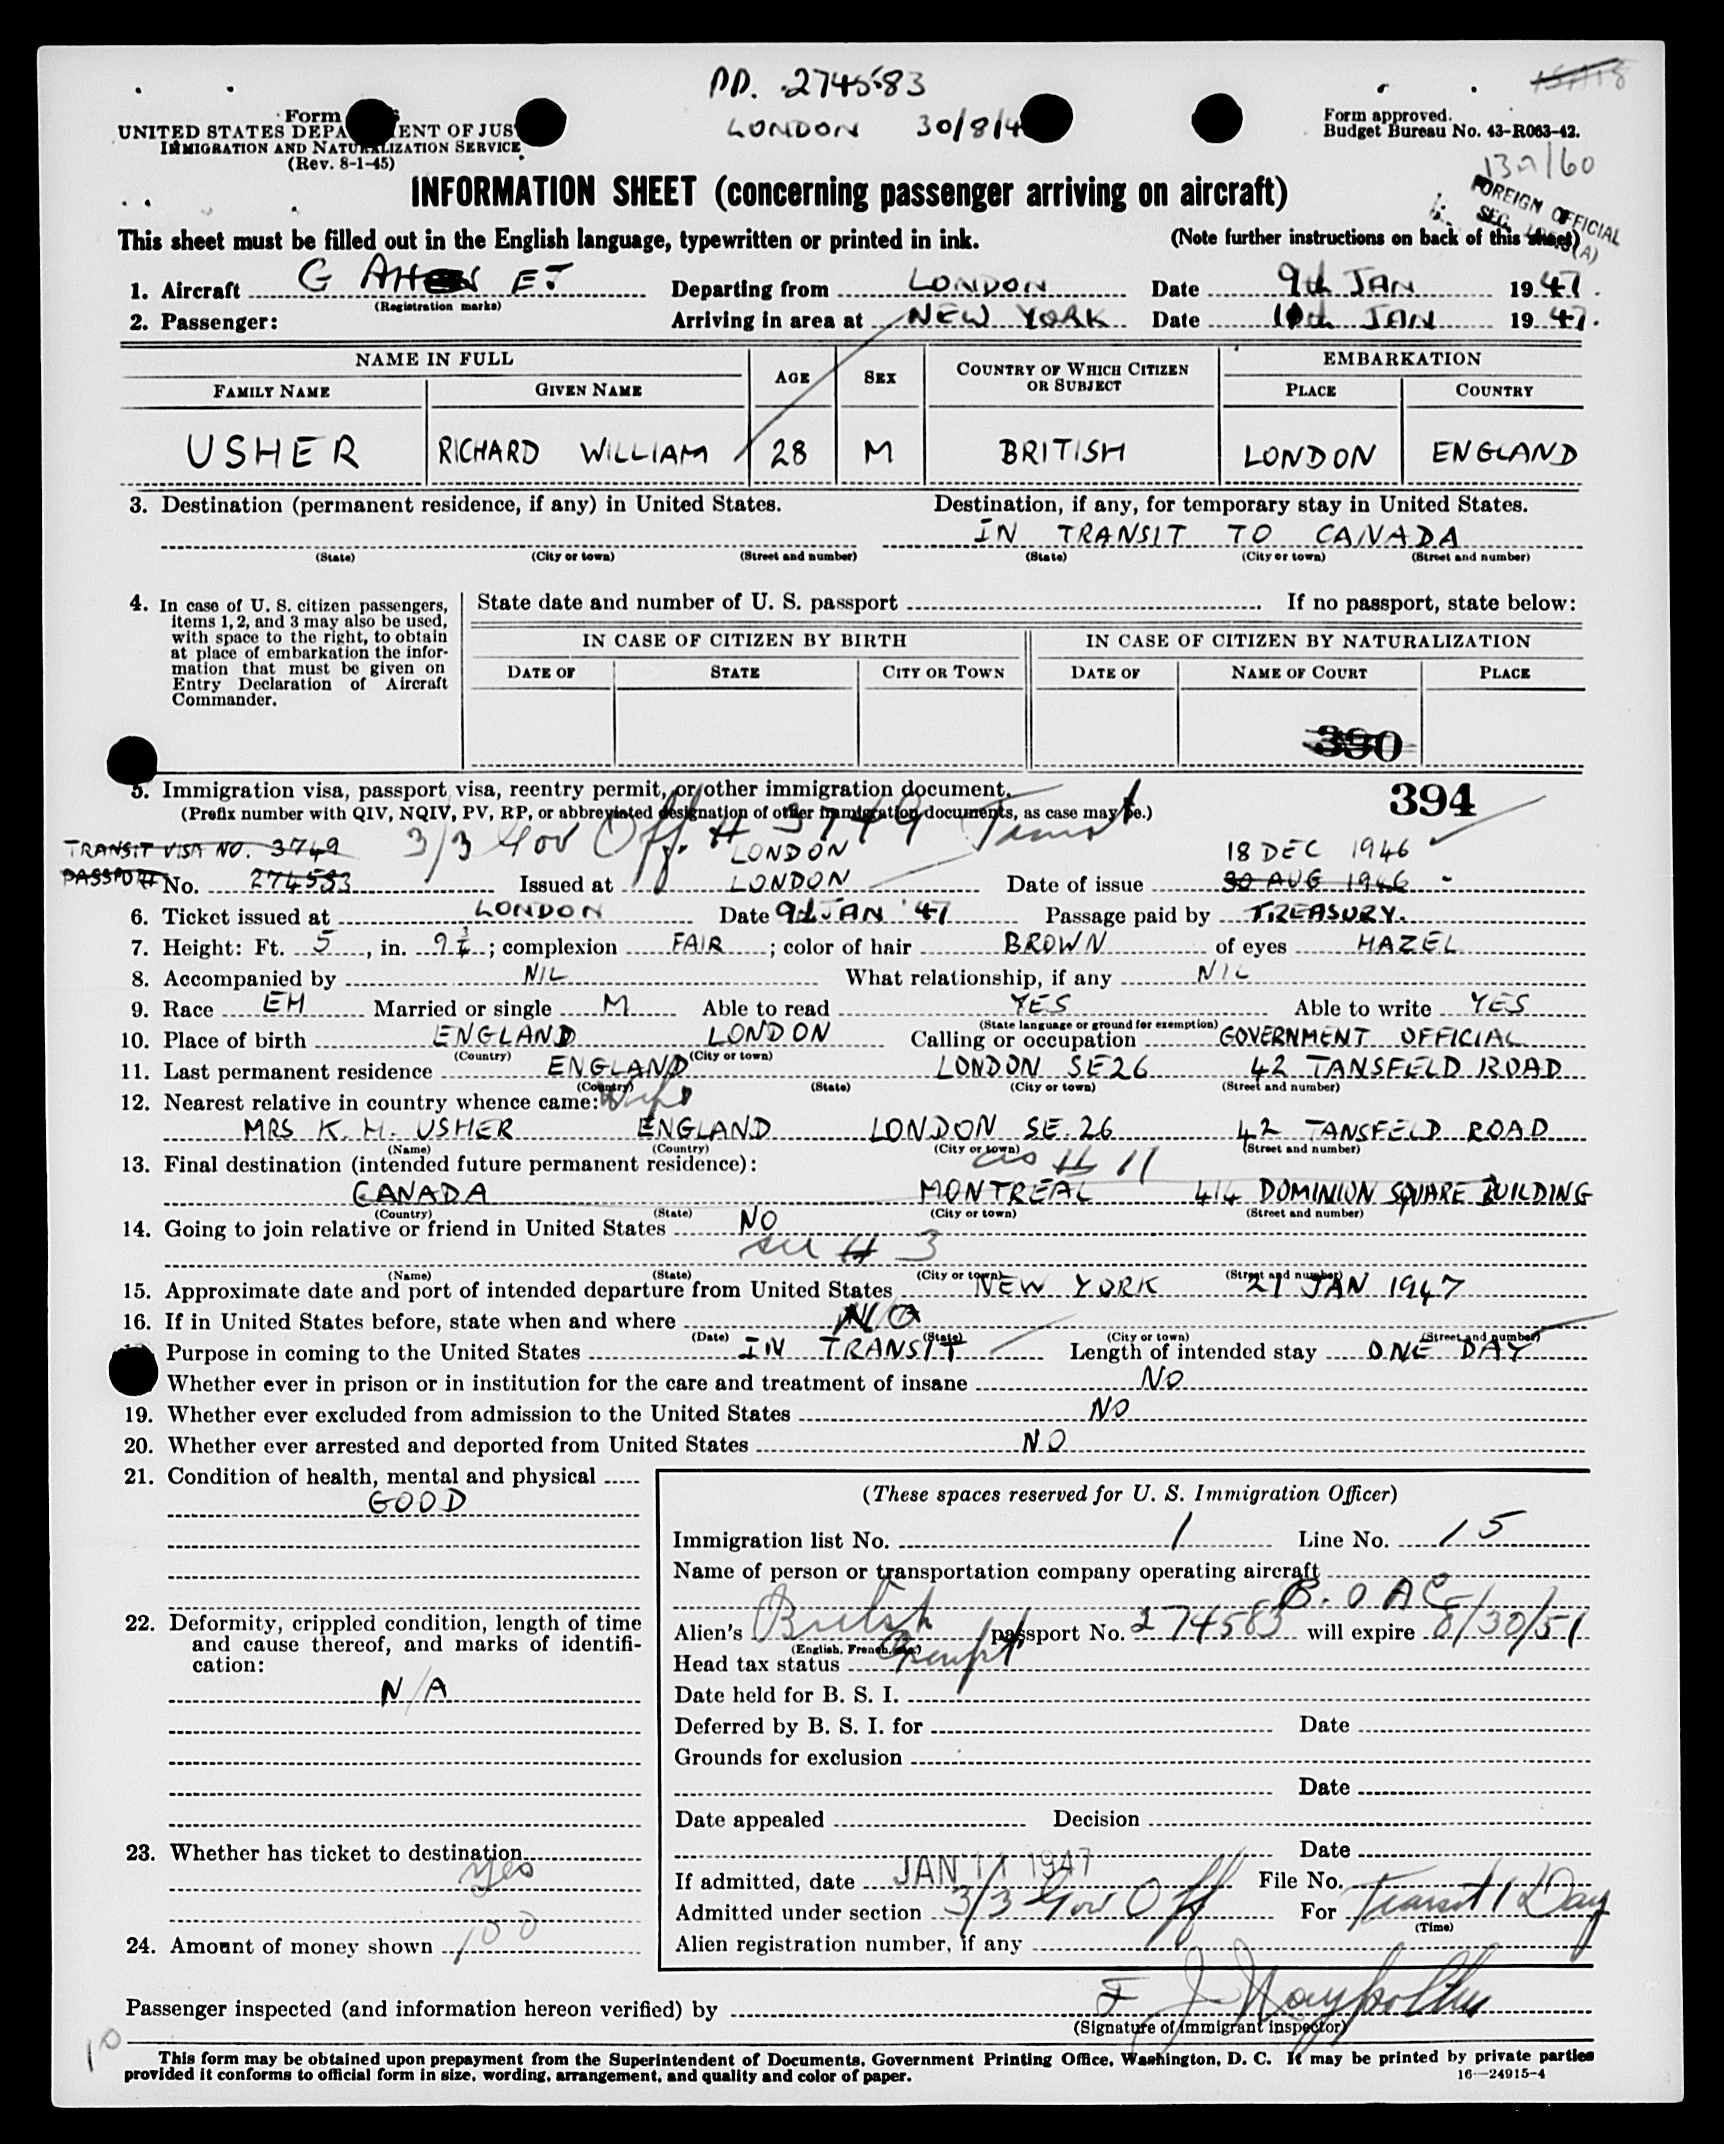 PP. 2745583
LONDON 30/8/4
Form
UNITED STATES DEPA ENT OF JUS
IMMIGRATION AND NATURALIZATION SERVICE
(Rev. 8-1-45)
Form approved.
Budget Bureau No. 43-R063-42.
FOREIGN OFFICIAL
SEC.
INFORMATION SHEET (concerning passenger arriving on aircraft)
This sheet must be filled out in the English language, typewritten or printed in ink.
(Note further instructions on back of this sheet)
1. Aircraft G AH EJ Departing from LONDON Date 9th JAN 1947.
(Registration marks)
2. Passenger: Arriving in area at NEW YORK Date 10th JAN 1947.
NAME IN FULL AGE SEX COUNTRY OF WHICH CITIZEN OR SUBJECT EMBARKATION
FAMILY NAME GIVEN NAME PLACE COUNTRY
USHER RICHARD WILLIAM 28 M BRITISH LONDON ENGLAND
3. Destination (permanent residence, if any) in United States. Destination, if any, for temporary stay in United States.
IN TRANSIT TO CANADA
(State) (City or town) (Street and number) (State) (City or town) (Street and number)
4. In case of U. S. citizen passengers, items 1, 2, and 3 may also be used, with space to the right, to obtain at place of embarkation the information that must be given on Entry Declaration of Aircraft Commander.
State date and number of U. S. passport . If no passport, state below:
IN CASE OF CITIZEN BY BIRTH IN CASE OF CITIZEN BY NATURALIZATION
DATE OF STATE CITY OR TOWN DATE OF NAME OF COURT PLACE
390
394
5. Immigration visa, passport visa, reentry permit, or other immigration document.
(Prefix number with QIV, NQIV, PV, RP, or abbreviated designation of other immigration documents, as case may be.)
3/3 Gov Off. # 3749 Transit
TRANSIT VISA NO. 3749 LONDON 18 DEC 1946
PASSPORT No. 274583 Issued at LONDON Date of issue 30 AUG 1946
6. Ticket issued at LONDON Date 9th JAN '47 Passage paid by TREASURY.
7. Height: Ft. 5, in. 9¾; complexion FAIR; color of hair BROWN of eyes HAZEL
8. Accompanied by NIL What relationship, if any NIL
9. Race EH Married or single M Able to read YES Able to write YES
(State language or ground for exemption)
10. Place of birth ENGLAND LONDON Calling or occupation GOVERNMENT OFFICIAL
(Country) (City or town)
11. Last permanent residence ENGLAND LONDON SE26 42 TANSFELD ROAD
(Country) (State) (City or town) (Street and number)
12. Nearest relative in country whence came: Wife
MRS K. H. USHER ENGLAND LONDON SE.26 42 TANSFELD ROAD
(Name) (Country) (City or town) (Street and number)
13. Final destination (intended future permanent residence): as # 11
CANADA MONTREAL 414 DOMINION SQUARE BUILDING
(Country) (State) (City or town) (Street and number)
14. Going to join relative or friend in United States NO
see # 3
(Name) (State) (City or town) (Street and number)
15. Approximate date and port of intended departure from United States NEW YORK 21 JAN 1947
16. If in United States before, state when and where NO
(Date) (State) (City or town) (Street and number)
Purpose in coming to the United States IN TRANSIT Length of intended stay ONE DAY
Whether ever in prison or in institution for the care and treatment of insane NO
19. Whether ever excluded from admission to the United States NO
20. Whether ever arrested and deported from United States NO
21. Condition of health, mental and physical
GOOD
22. Deformity, crippled condition, length of time and cause thereof, and marks of identification:
N/A
23. Whether has ticket to destination
Yes
24. Amount of money shown 100
(These spaces reserved for U. S. Immigration Officer)
Immigration list No. 1 Line No. 15
Name of person or transportation company operating aircraft
B.O A C
Alien's British passport No. 274583 will expire 8/30/51
(English, French, etc.)
Head tax status Exempt
Date held for B. S. I.
Deferred by B. S. I. for Date
Grounds for exclusion
Date
Date appealed Decision
Date
If admitted, date JAN 11 1947 File No.
Admitted under section 3/3 Gov Off For Transit 1 Day
(Time)
Alien registration number, if any
Passenger inspected (and information hereon verified) by
(Signature of immigrant inspector)
10
This form may be obtained upon prepayment from the Superintendent of Documents, Government Printing Office, Washington, D. C. It may be printed by private parties
provided it conforms to official form in size, wording, arrangement, and quality and color of paper.
16—24915-4